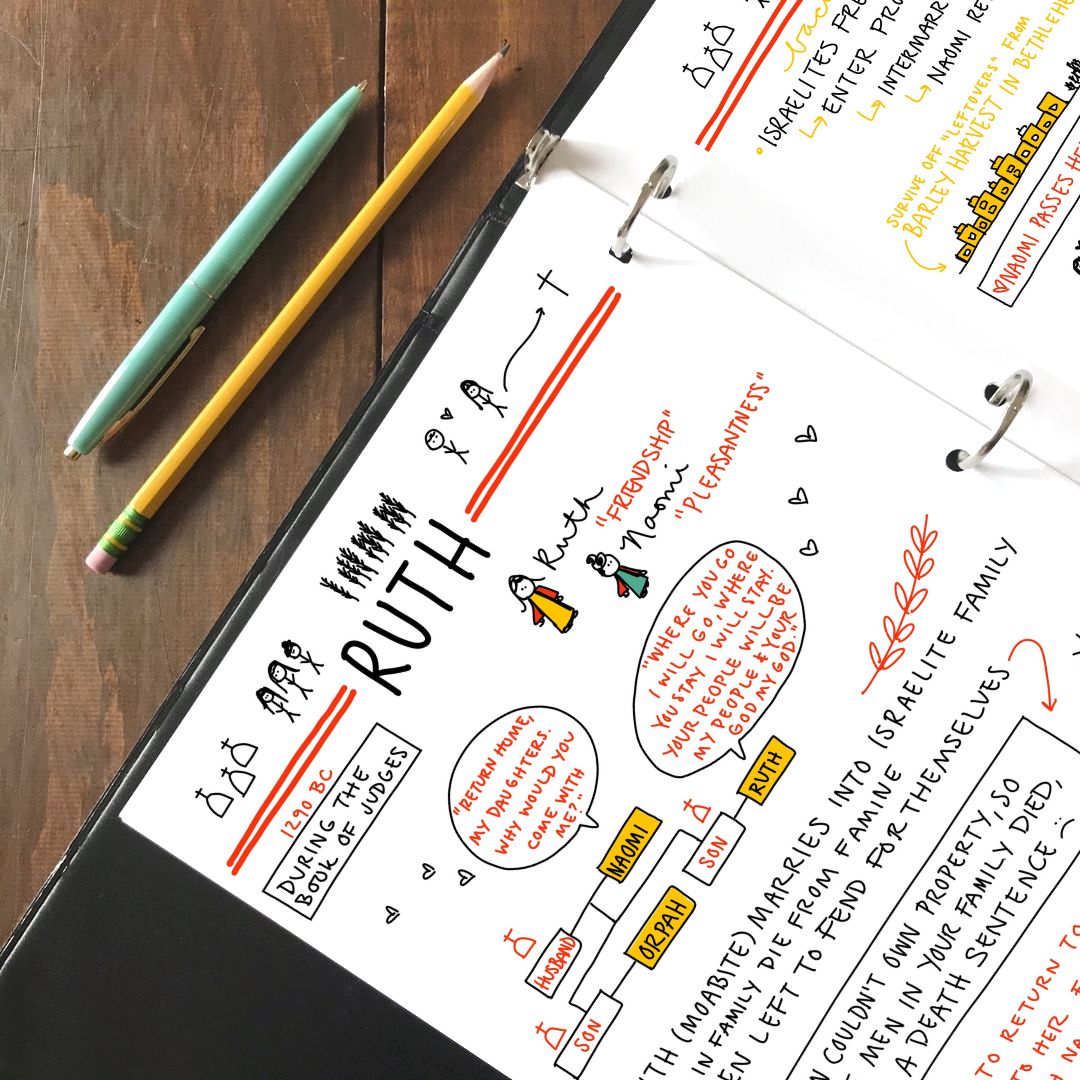 1290 BC
DURING THE
BOOK OF JUDGES
RUTH
Ruth
"FRIENDSHIP"
Naomi
"PLEASANTNESS"
"RETURN HOME,
MY DAUGHTERS.
WHY WOULD YOU
COME WITH
ME?"
"WHERE YOU GO
I WILL GO, WHERE
YOU STAY I WILL STAY.
YOUR PEOPLE WILL BE
MY PEOPLE & YOUR
GOD MY GOD."
HUSBAND
NAOMI
SON
ORPAH
SON
RUTH
(MOABITE) MARRIES INTO ISRAELITE FAMILY
IN FAMILY DIE FROM FAMINE
LEFT TO FEND FOR THEMSELVES
COULDN'T OWN PROPERTY, SO
MEN IN YOUR FAMILY DIED,
A DEATH SENTENCE :(
TO RETURN TO
HER
• ISRAELITES
↳ ENTER
↳
↳ NAOMI
SURVIVE OFF "LEFTOVERS" FROM
BARLEY HARVEST IN
♡NAOMI PASSES